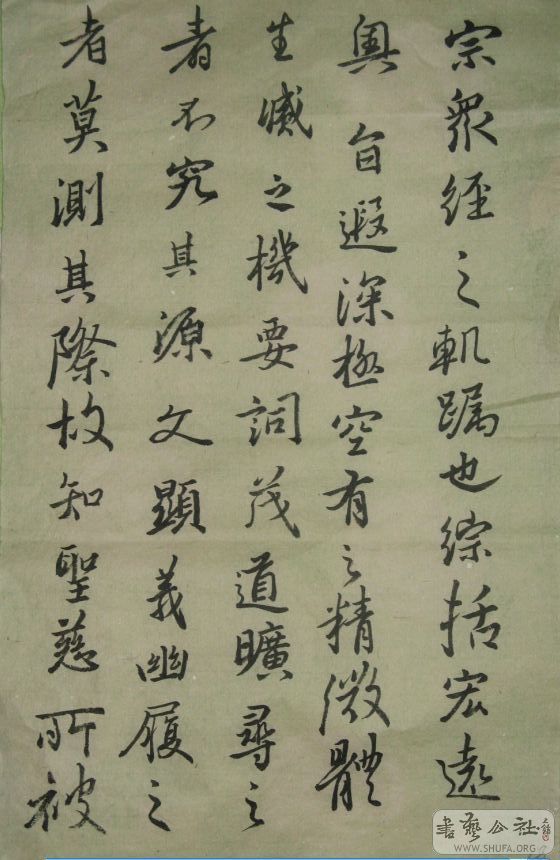 宗衆經之軌躅也綜括宏遠
奧旨遐深極空有之精微體
生滅之機要詞茂道曠尋之
者不究其源文顯義幽履之
者莫測其際故知聖慈所被
書藝公社
WWW.SHUFA.ORG